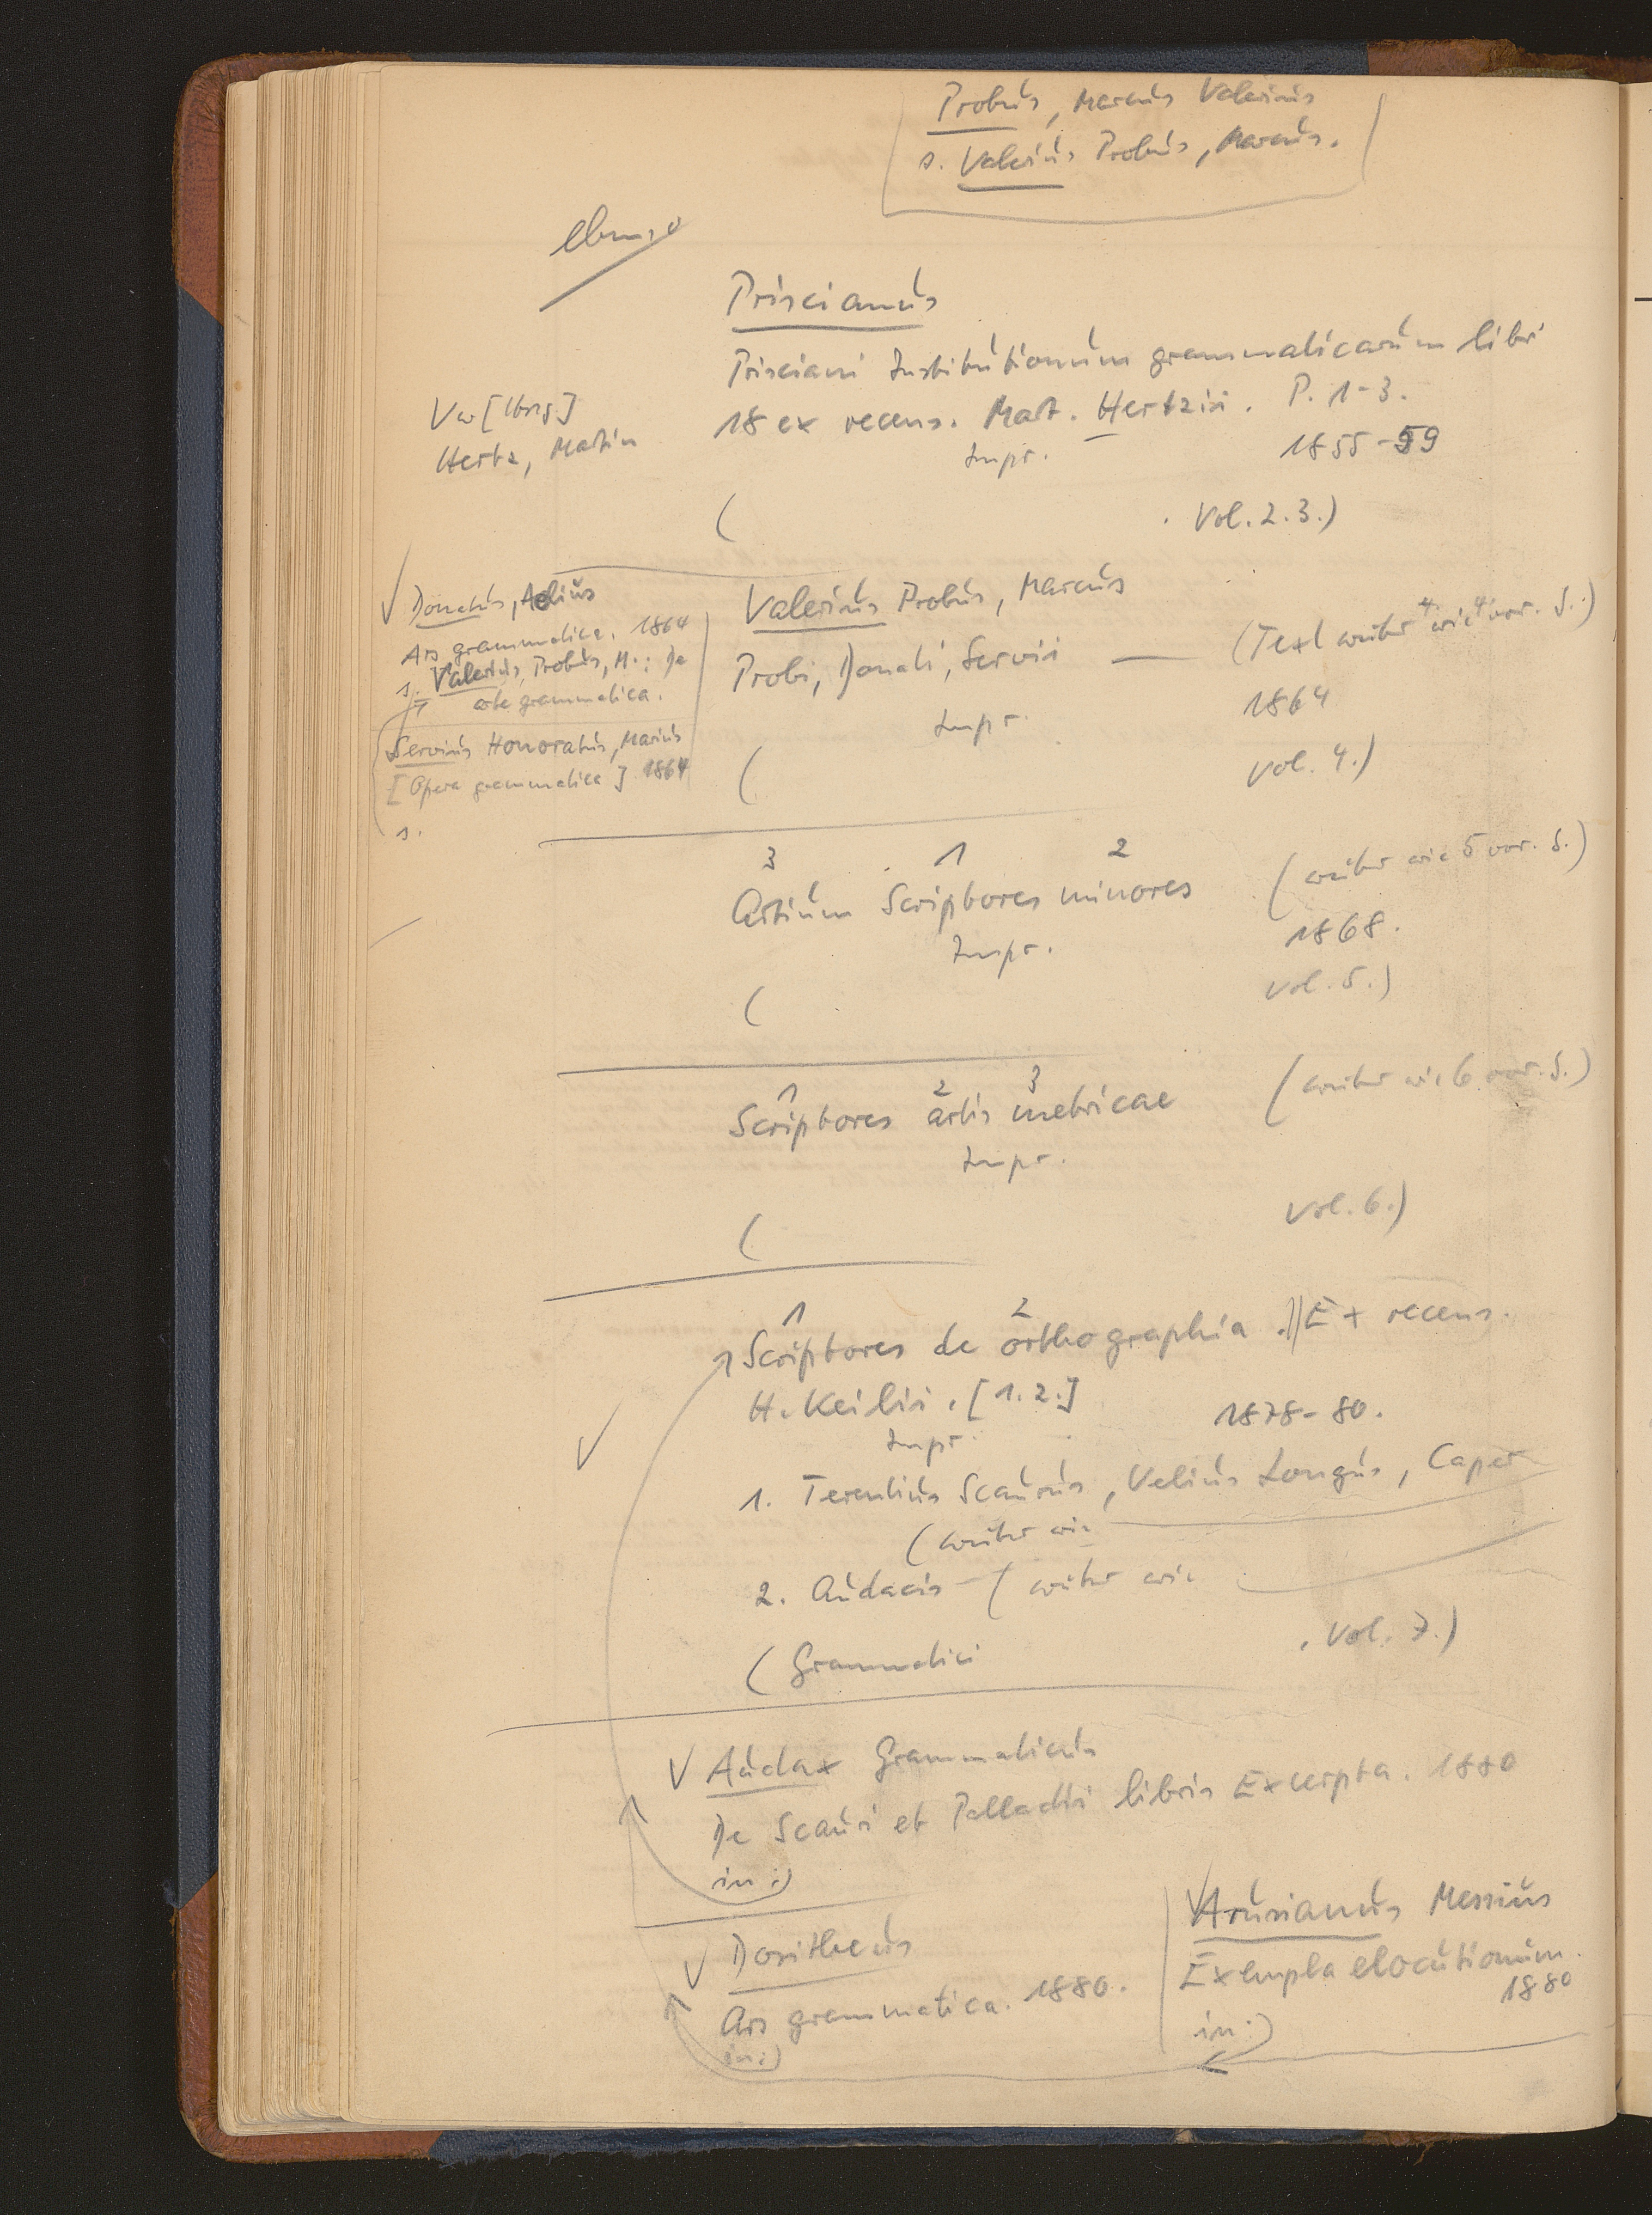 Probus, Marcus Valerius
s. Valerius Probus, Marcus.
ebenso
Priscianus
Prisciani Institutionum grammaticarum libri
18 ex recens. Mart. Hertzii. P. 1-3.
Impr. 1855-59
( . Vol. 2.3.)
Vw [Hrsg.]
Hertz, Martin
Donatus, Aelius
Ars grammatica. 1864
s. Valerius Probus, M.: De
arte grammatica.
Servius Honoratus, Marius
[Opera grammatica] 1864
s.
Valerius Probus, Marcus
Probi, Donati, Servii — (Text weiter wie 4 vor. S.:)
Impr. 1864
( Vol. 4.)
3 1 2
Artium Scriptores minores (weiter wie 5 vor. S.)
Impr. 1868.
( Vol. 5.)
1 2 3
Scriptores artis metricae (weiter wie 6 vor. S.)
Impr.
( Vol. 6.)
1 2
Scriptores de orthographia. || Ex recens.
H. Keilii. [1.2.]
Impr. 1878-80.
1. Terentius Scaurus, Velius Longus, Caper
(weiter wie
2. Audacis - (weiter wie
(Grammatici . Vol. 7.)
Audax Grammaticus
De Scauri et Palladii libris Excerpta. 1880
in:)
Dositheus
Ars grammatica. 1880.
in:)
Arusianus Messius
Exempla elocutionum.
1880
in:)